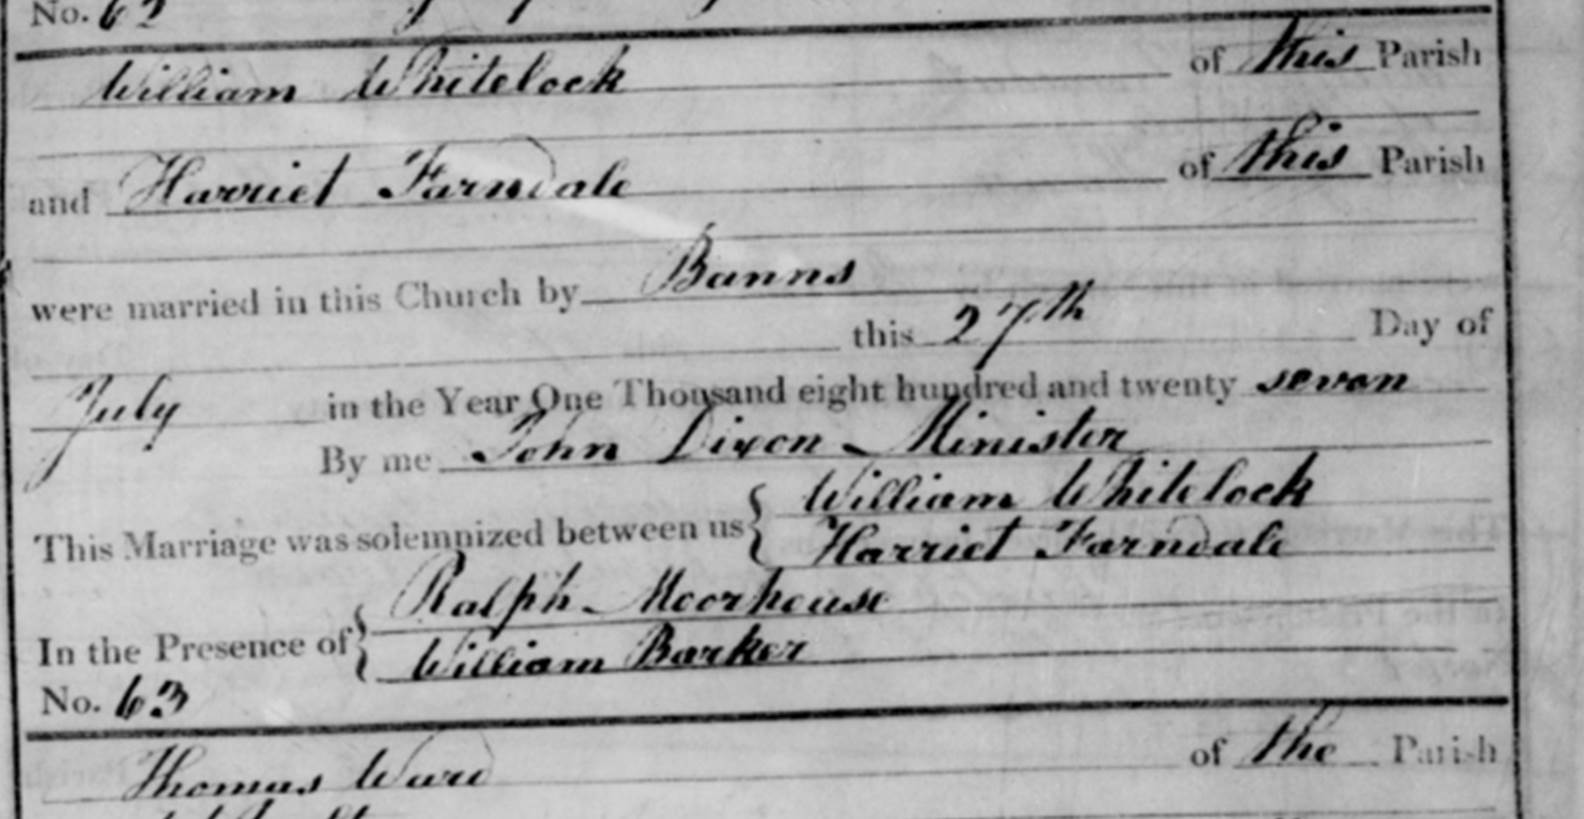 No. 62
William Whitelock of this Parish
and Harriet Farndale of this Parish
were married in this Church by Banns
this 27th Day of
July in the Year One Thousand eight hundred and twenty seven
By me John Dixon Minister
This Marriage was solemnized between us { William Whitelock
Harriet Farndale
In the Presence of { Ralph Moorhouse
William Barker
No. 63
Thomas Ward of the Parish